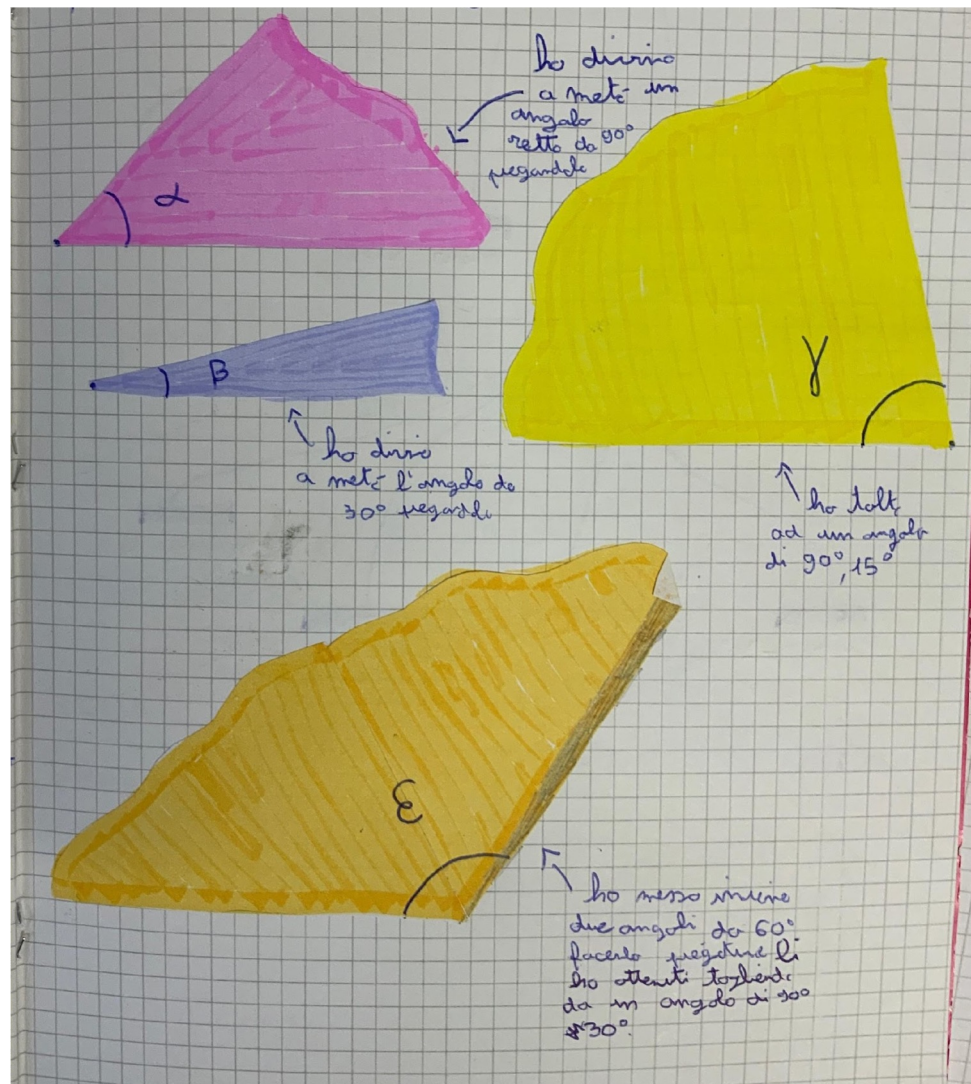 ho diviso
a metà un
angolo
retto da 90°
piegandolo
α
β
γ
ho diviso
a metà l'angolo da
30° piegandolo
ho tolto
ad un angolo
di 90°, 15°
ε
ho messo insieme
due angoli da 60°
facendo piegature li
ho ottenuti togliendo
da un angolo di 90°
30°.